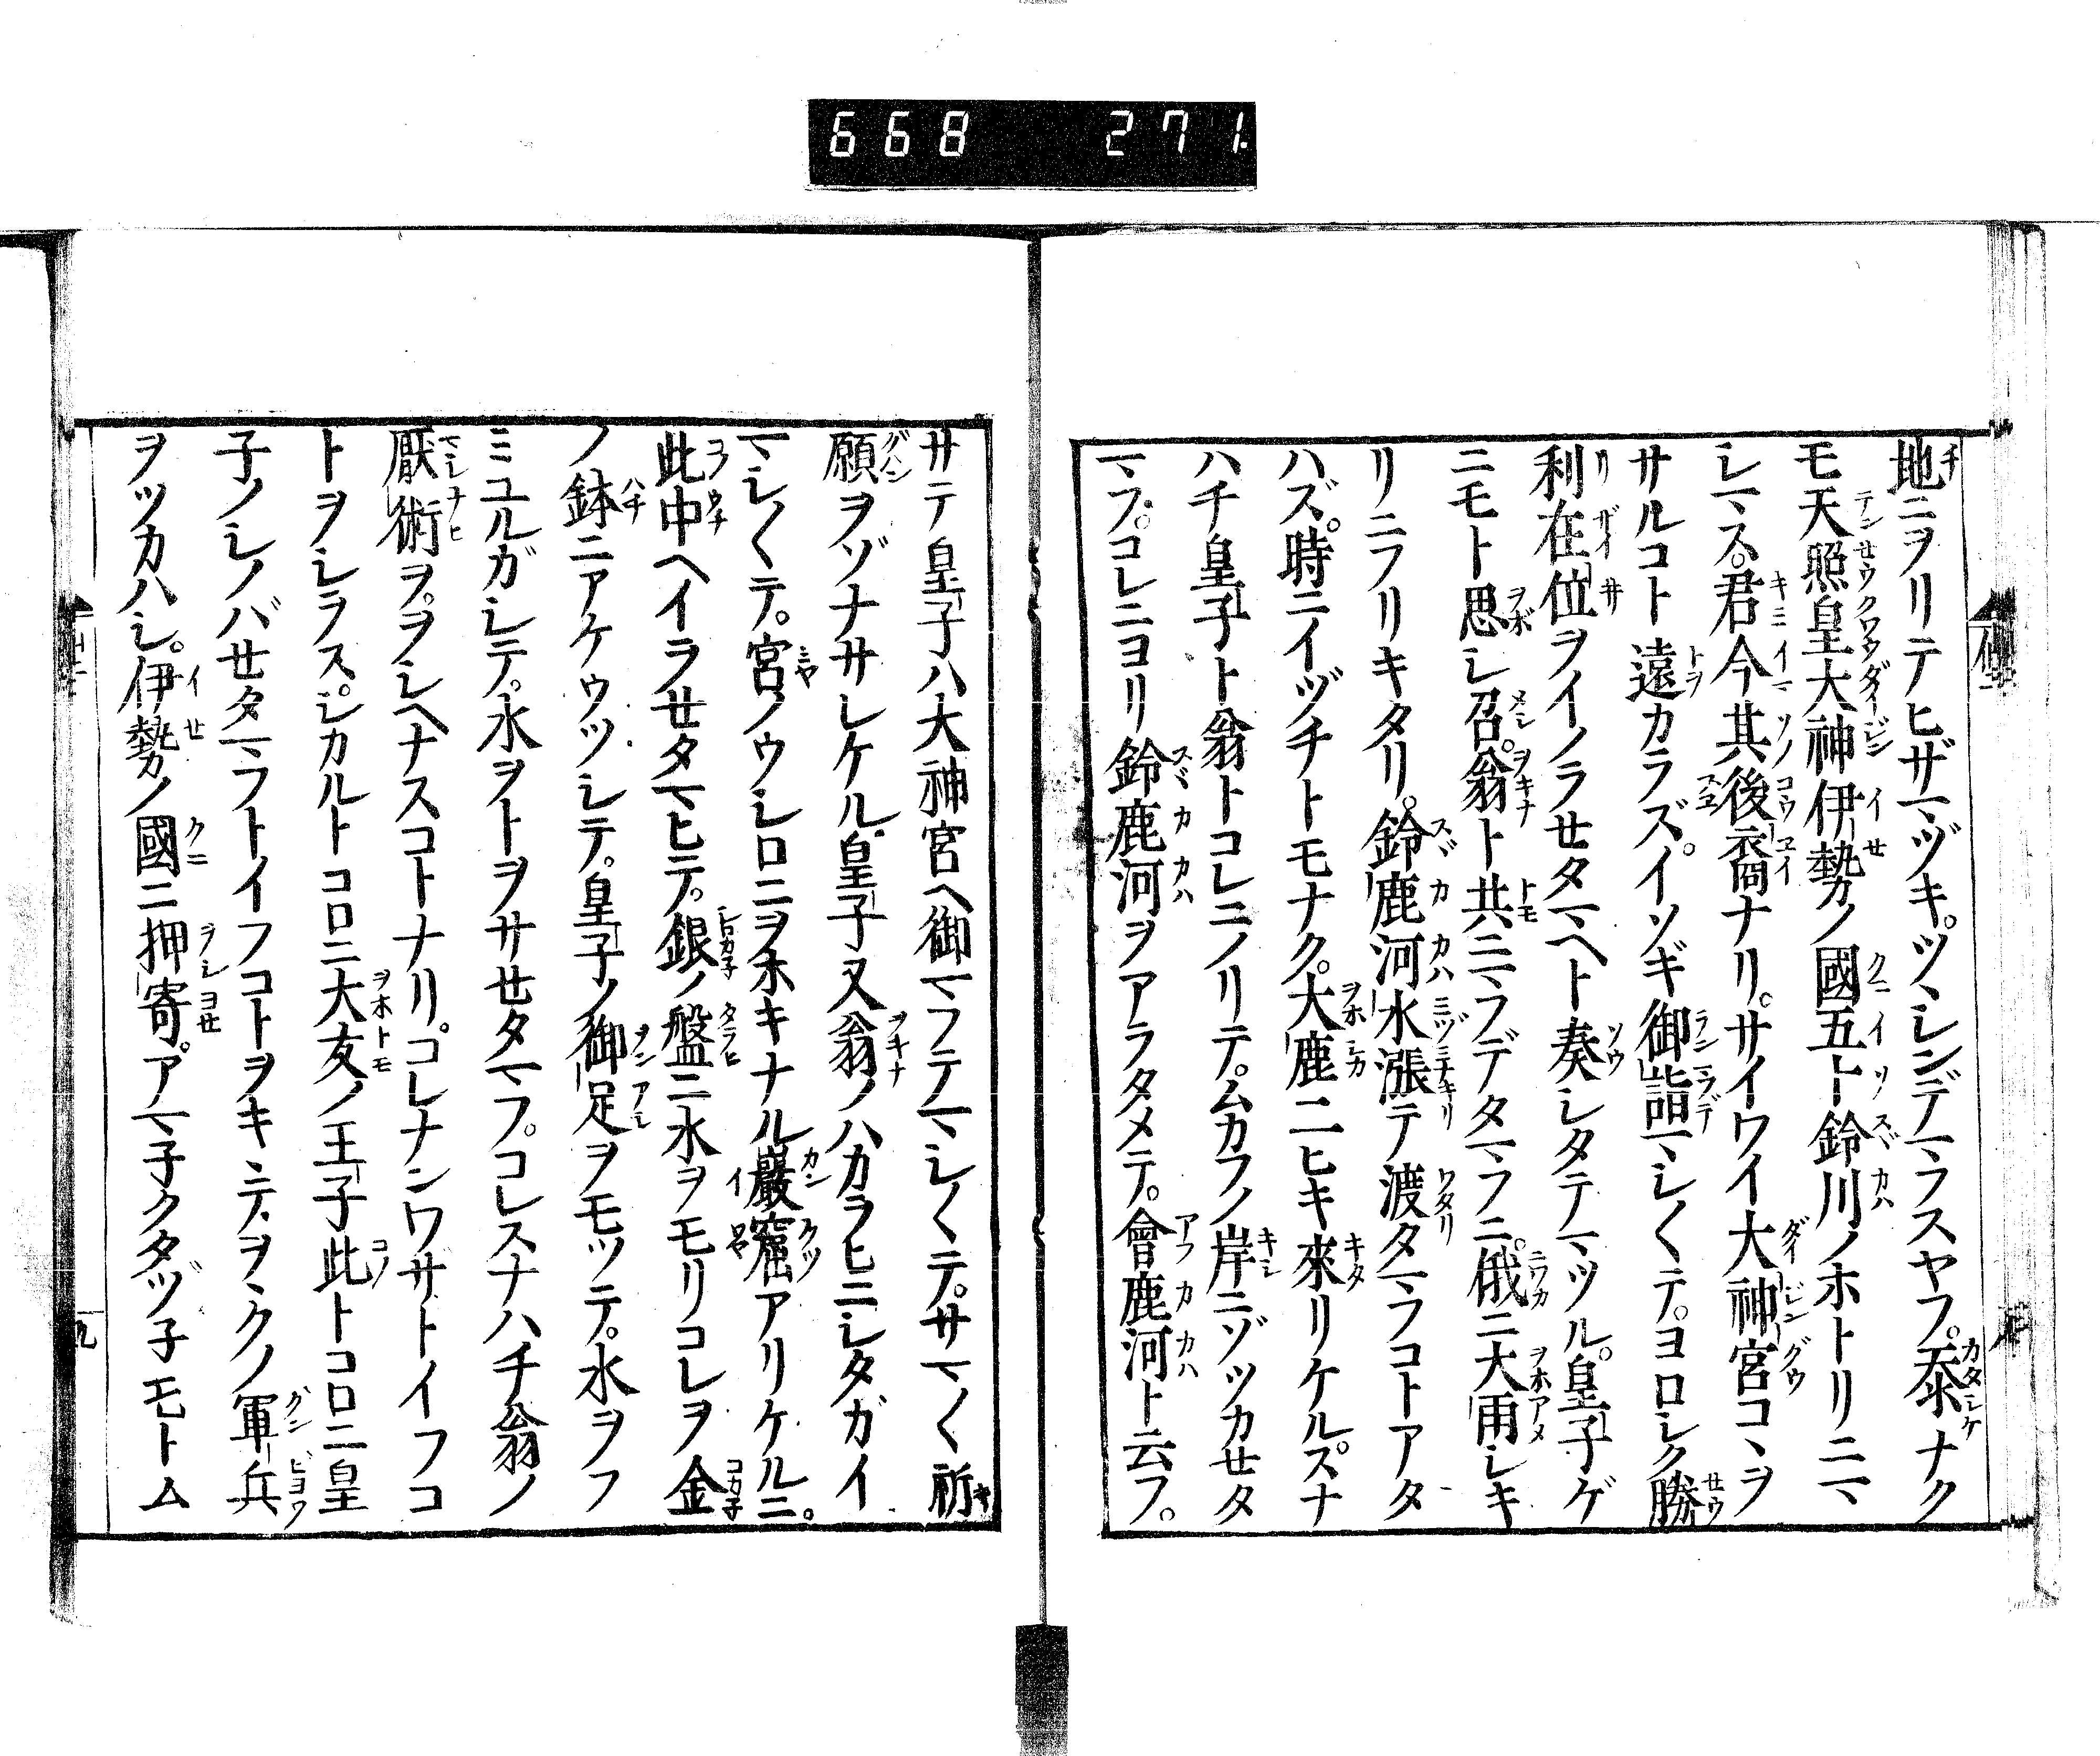 668 271
地ニヲリテヒザマヅキ。ツヽシンデマヲスヤフ。忝ナク
モ天照皇大神伊勢ノ國五十鈴川ノホトリニマ
シマス。君今其後裔ナリ。サイワイ大神宮コヽヲ
サルコト遠カラズ。イソギ御詣マシ〳〵テ。ヨロシク勝
利在位ヲイノラせタマヘト奏シタテマツル。皇子ゲ
ニモト思シ召。翁ト共ニマフデタマフニ。俄ニ大雨シキ
リニフリキタリ。鈴鹿河水漲テ渡タマフコトアタ
ハズ。時ニイヅチトモナク。大鹿二ヒキ來リケル。スナ
ハチ皇子ト翁トコレニノリテ。ムカフノ岸ニヅツカせタ
マフ。コレニヨリ鈴鹿河ヲアラタメテ。會鹿河ト云フ。
サテ皇子ハ大神宮ヘ御マフテマシ〳〵テ。サマ〳〵祈
願ヲゾナサレケル。皇子又翁ノハカラヒニシタガイ
マシ〳〵テ。宮ノウシロニヲホキナル巖窟アリケルニ。
此中ヘイラせタマヒテ。銀ノ盤ニ水ヲモリコレヲ金
ノ鉢ニアケウツシテ。皇子ノ御足ヲモツテ。水ヲフ
ミユルガシテ。水ヲトヲサせタマフ。コレスナハチ翁ノ
厭術ヲ。ヲシヘナスコトナリ。コレナンワザトイフコ
トヲシラス。シカルトコロニ大友ノ王子此トコロニ皇
子ノシノバせタマフトイフコトヲキヽテ。ヲヽクノ軍兵
ヲツカハシ。伊勢ノ國ニ押寄。アマ子クタヅ子モトム
九